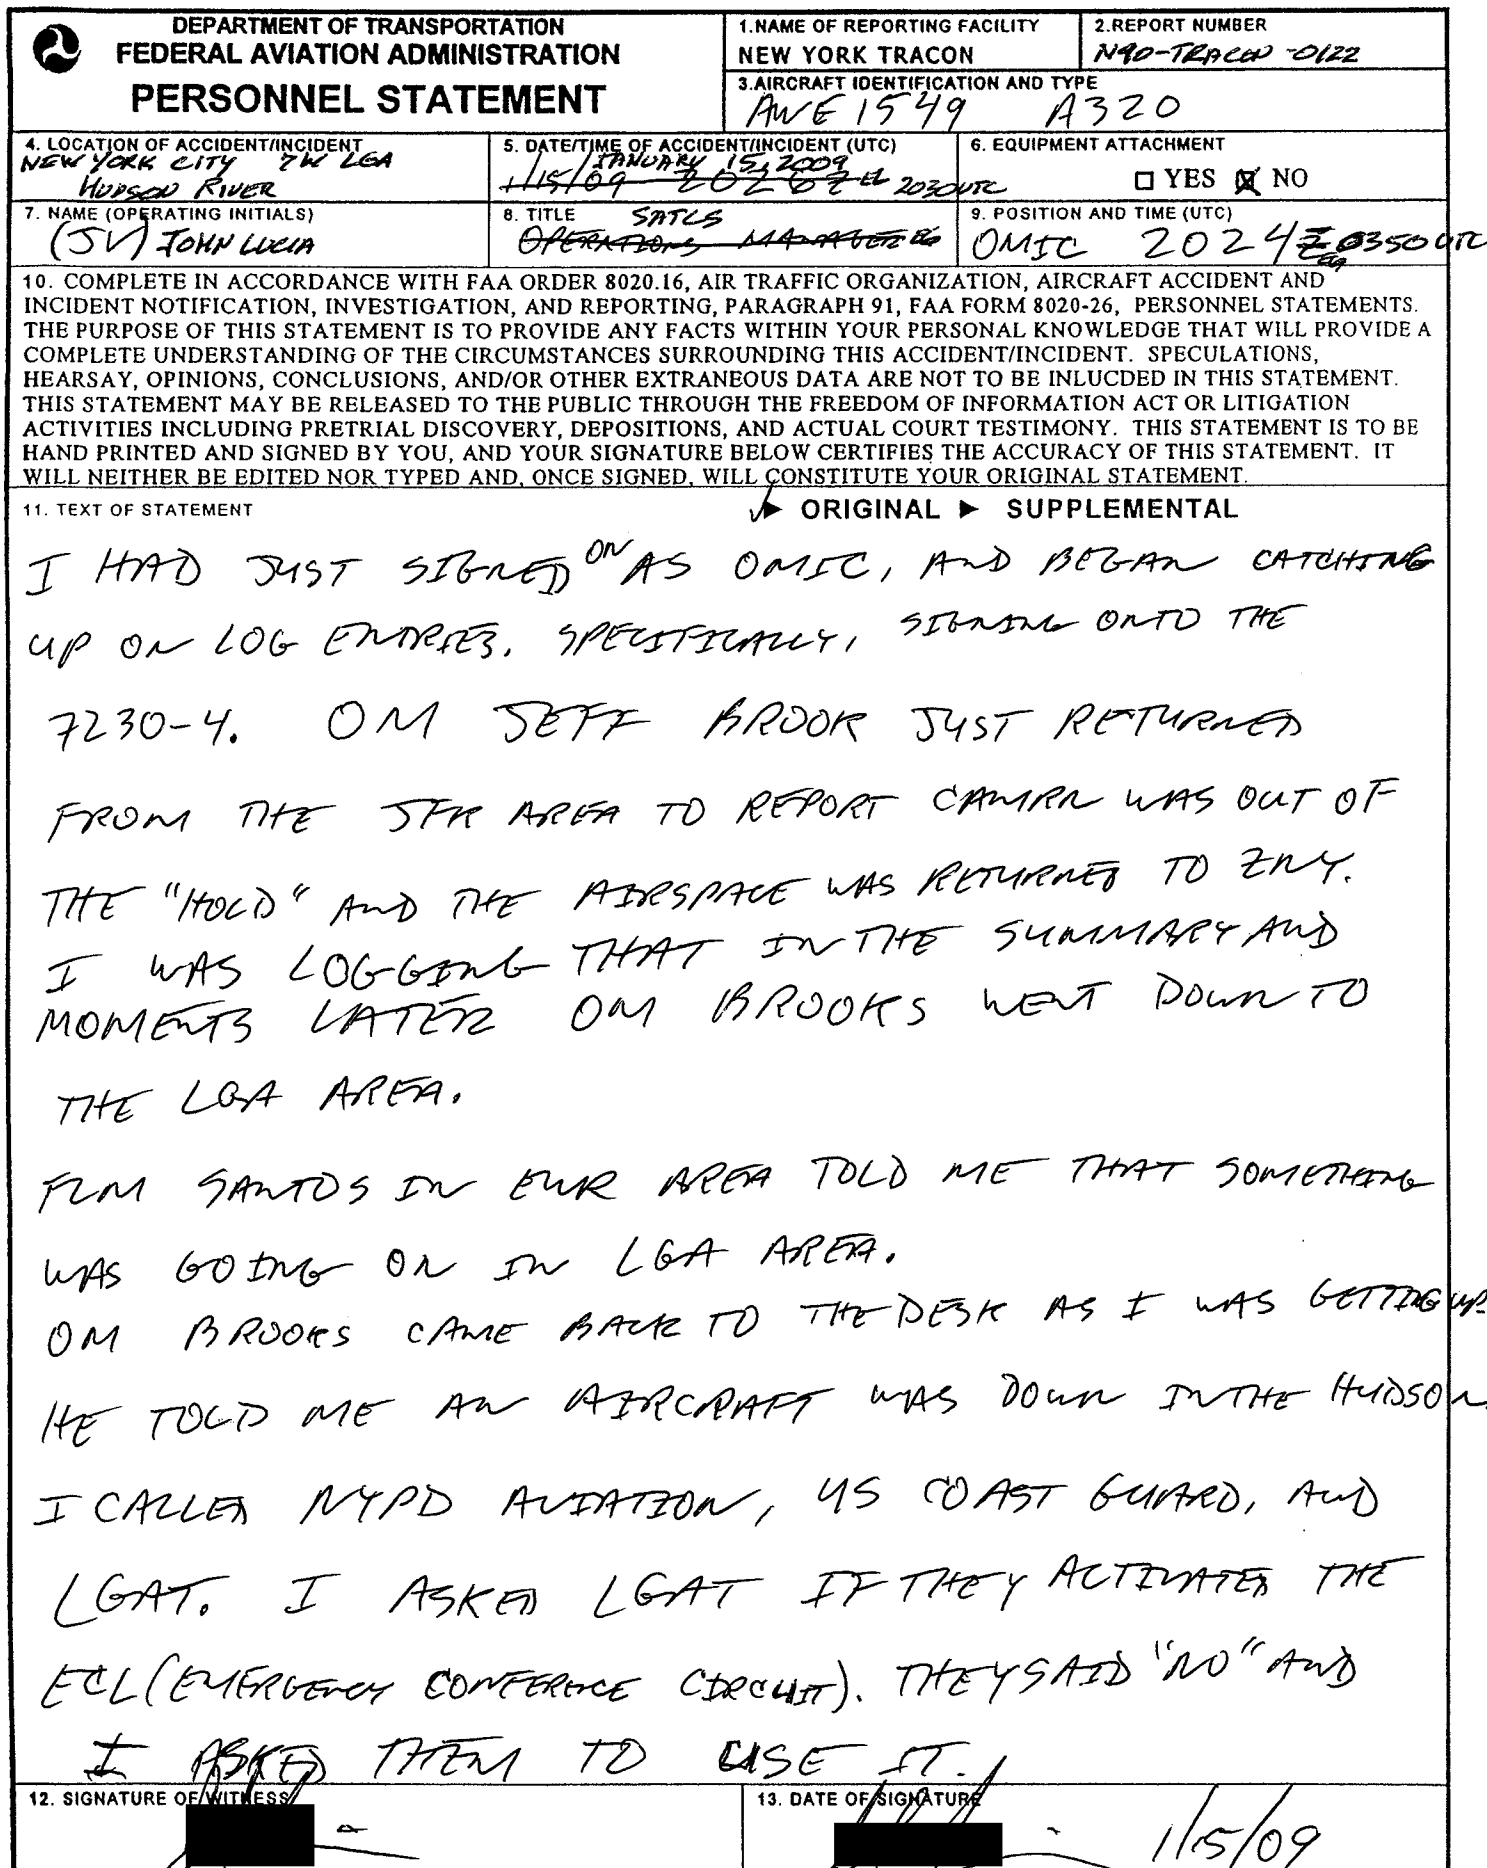 DEPARTMENT OF TRANSPORTATION
FEDERAL AVIATION ADMINISTRATION
PERSONNEL STATEMENT
1.NAME OF REPORTING FACILITY
NEW YORK TRACON
2.REPORT NUMBER
N90-TRACON-0122
3.AIRCRAFT IDENTIFICATION AND TYPE
AWE 1549 A320
4. LOCATION OF ACCIDENT/INCIDENT
NEW YORK CITY 7W LGA
HUDSON RIVER
5. DATE/TIME OF ACCIDENT/INCIDENT (UTC)
JANUARY 15, 2009
1/15/09 2026Z 2030UTC
6. EQUIPMENT ATTACHMENT
YES NO
7. NAME (OPERATING INITIALS)
(JV) JOHN LUCIA
8. TITLE SATCS
OPERATIONS MANAGER
9. POSITION AND TIME (UTC)
OMIC 2024Z 0350UTC
10. COMPLETE IN ACCORDANCE WITH FAA ORDER 8020.16, AIR TRAFFIC ORGANIZATION, AIRCRAFT ACCIDENT AND
INCIDENT NOTIFICATION, INVESTIGATION, AND REPORTING, PARAGRAPH 91, FAA FORM 8020-26, PERSONNEL STATEMENTS.
THE PURPOSE OF THIS STATEMENT IS TO PROVIDE ANY FACTS WITHIN YOUR PERSONAL KNOWLEDGE THAT WILL PROVIDE A
COMPLETE UNDERSTANDING OF THE CIRCUMSTANCES SURROUNDING THIS ACCIDENT/INCIDENT. SPECULATIONS,
HEARSAY, OPINIONS, CONCLUSIONS, AND/OR OTHER EXTRANEOUS DATA ARE NOT TO BE INLUCDED IN THIS STATEMENT.
THIS STATEMENT MAY BE RELEASED TO THE PUBLIC THROUGH THE FREEDOM OF INFORMATION ACT OR LITIGATION
ACTIVITIES INCLUDING PRETRIAL DISCOVERY, DEPOSITIONS, AND ACTUAL COURT TESTIMONY. THIS STATEMENT IS TO BE
HAND PRINTED AND SIGNED BY YOU, AND YOUR SIGNATURE BELOW CERTIFIES THE ACCURACY OF THIS STATEMENT. IT
WILL NEITHER BE EDITED NOR TYPED AND, ONCE SIGNED, WILL CONSTITUTE YOUR ORIGINAL STATEMENT.
11. TEXT OF STATEMENT
ORIGINAL SUPPLEMENTAL
I HAD JUST SIGNED ON AS OMIC, AND BEGAN CATCHING
UP ON LOG ENTRIES. SPECIFICALLY, SIGNING ONTO THE
7230-4. OM JEFF BROOK JUST RETURNED
FROM THE JFK AREA TO REPORT CAMRN WAS OUT OF
THE "HOLD" AND THE AIRSPACE WAS RETURNED TO ZNY.
I WAS LOGGING THAT IN THE SUMMARY AND
MOMENTS LATER OM BROOKS WENT DOWN TO
THE LGA AREA.
FLM SANTOS IN EWR AREA TOLD ME THAT SOMETHING
WAS GOING ON IN LGA AREA.
OM BROOKS CAME BACK TO THE DESK AS I WAS GETTING UP.
HE TOLD ME AN AIRCRAFT WAS DOWN IN THE HUDSON.
I CALLED NYPD AVIATION, US COAST GUARD, AND
LGAT. I ASKED LGAT IF THEY ACTIVATED THE
ECL (EMERGENCY CONFERENCE CIRCUIT). THEY SAID "NO" AND
I ASKED THEM TO USE IT.
12. SIGNATURE OF WITNESS
13. DATE OF SIGNATURE
1/15/09